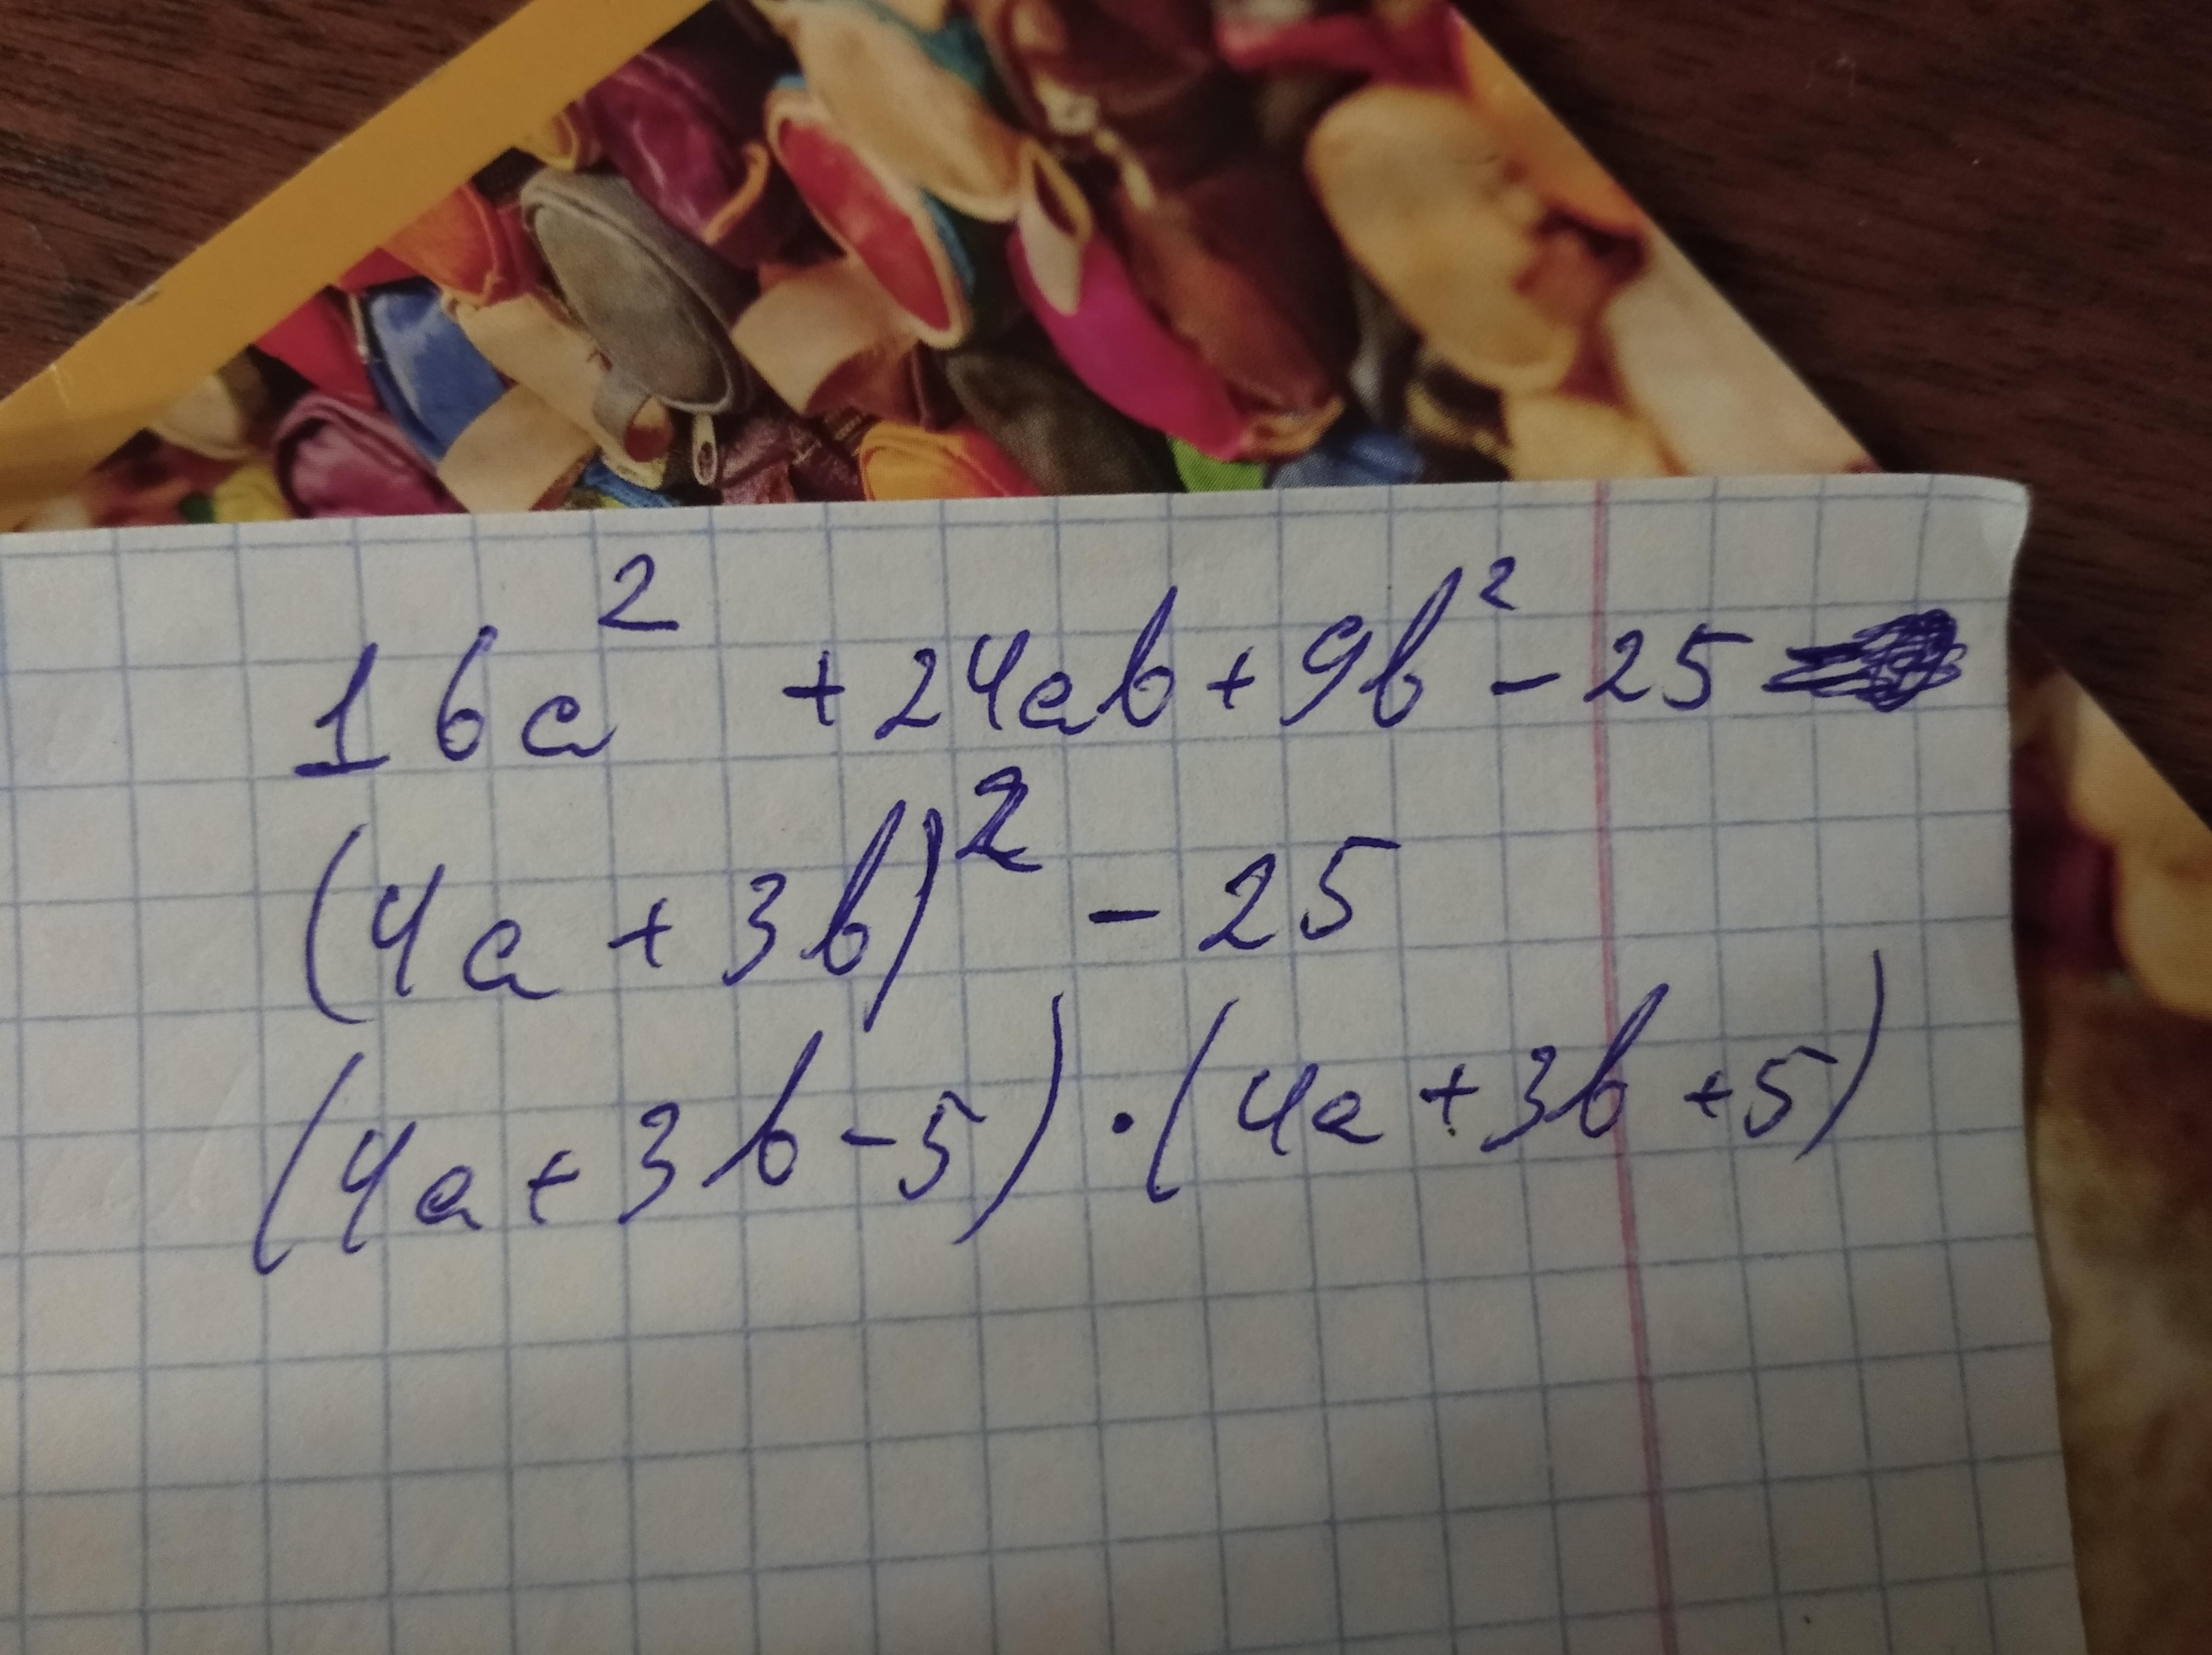 16a² + 24ab + 9b² - 25
(4a + 3b)² - 25
(4a + 3b - 5) · (4a + 3b + 5)